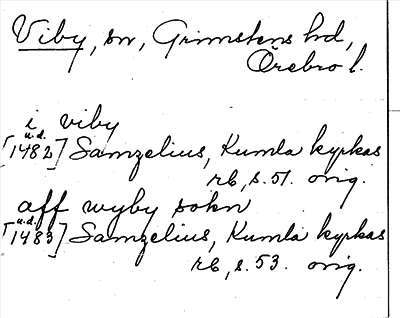 Viby, sn, Grimstens hd,
Örebro l.
i viby
u.d.
[1482] Samzelius, Kumla kyrkas
rb, s. 51. orig.
aff wyby sokn
u.d.
[1483] Samzelius, Kumla kyrkas
rb, s. 53. orig.